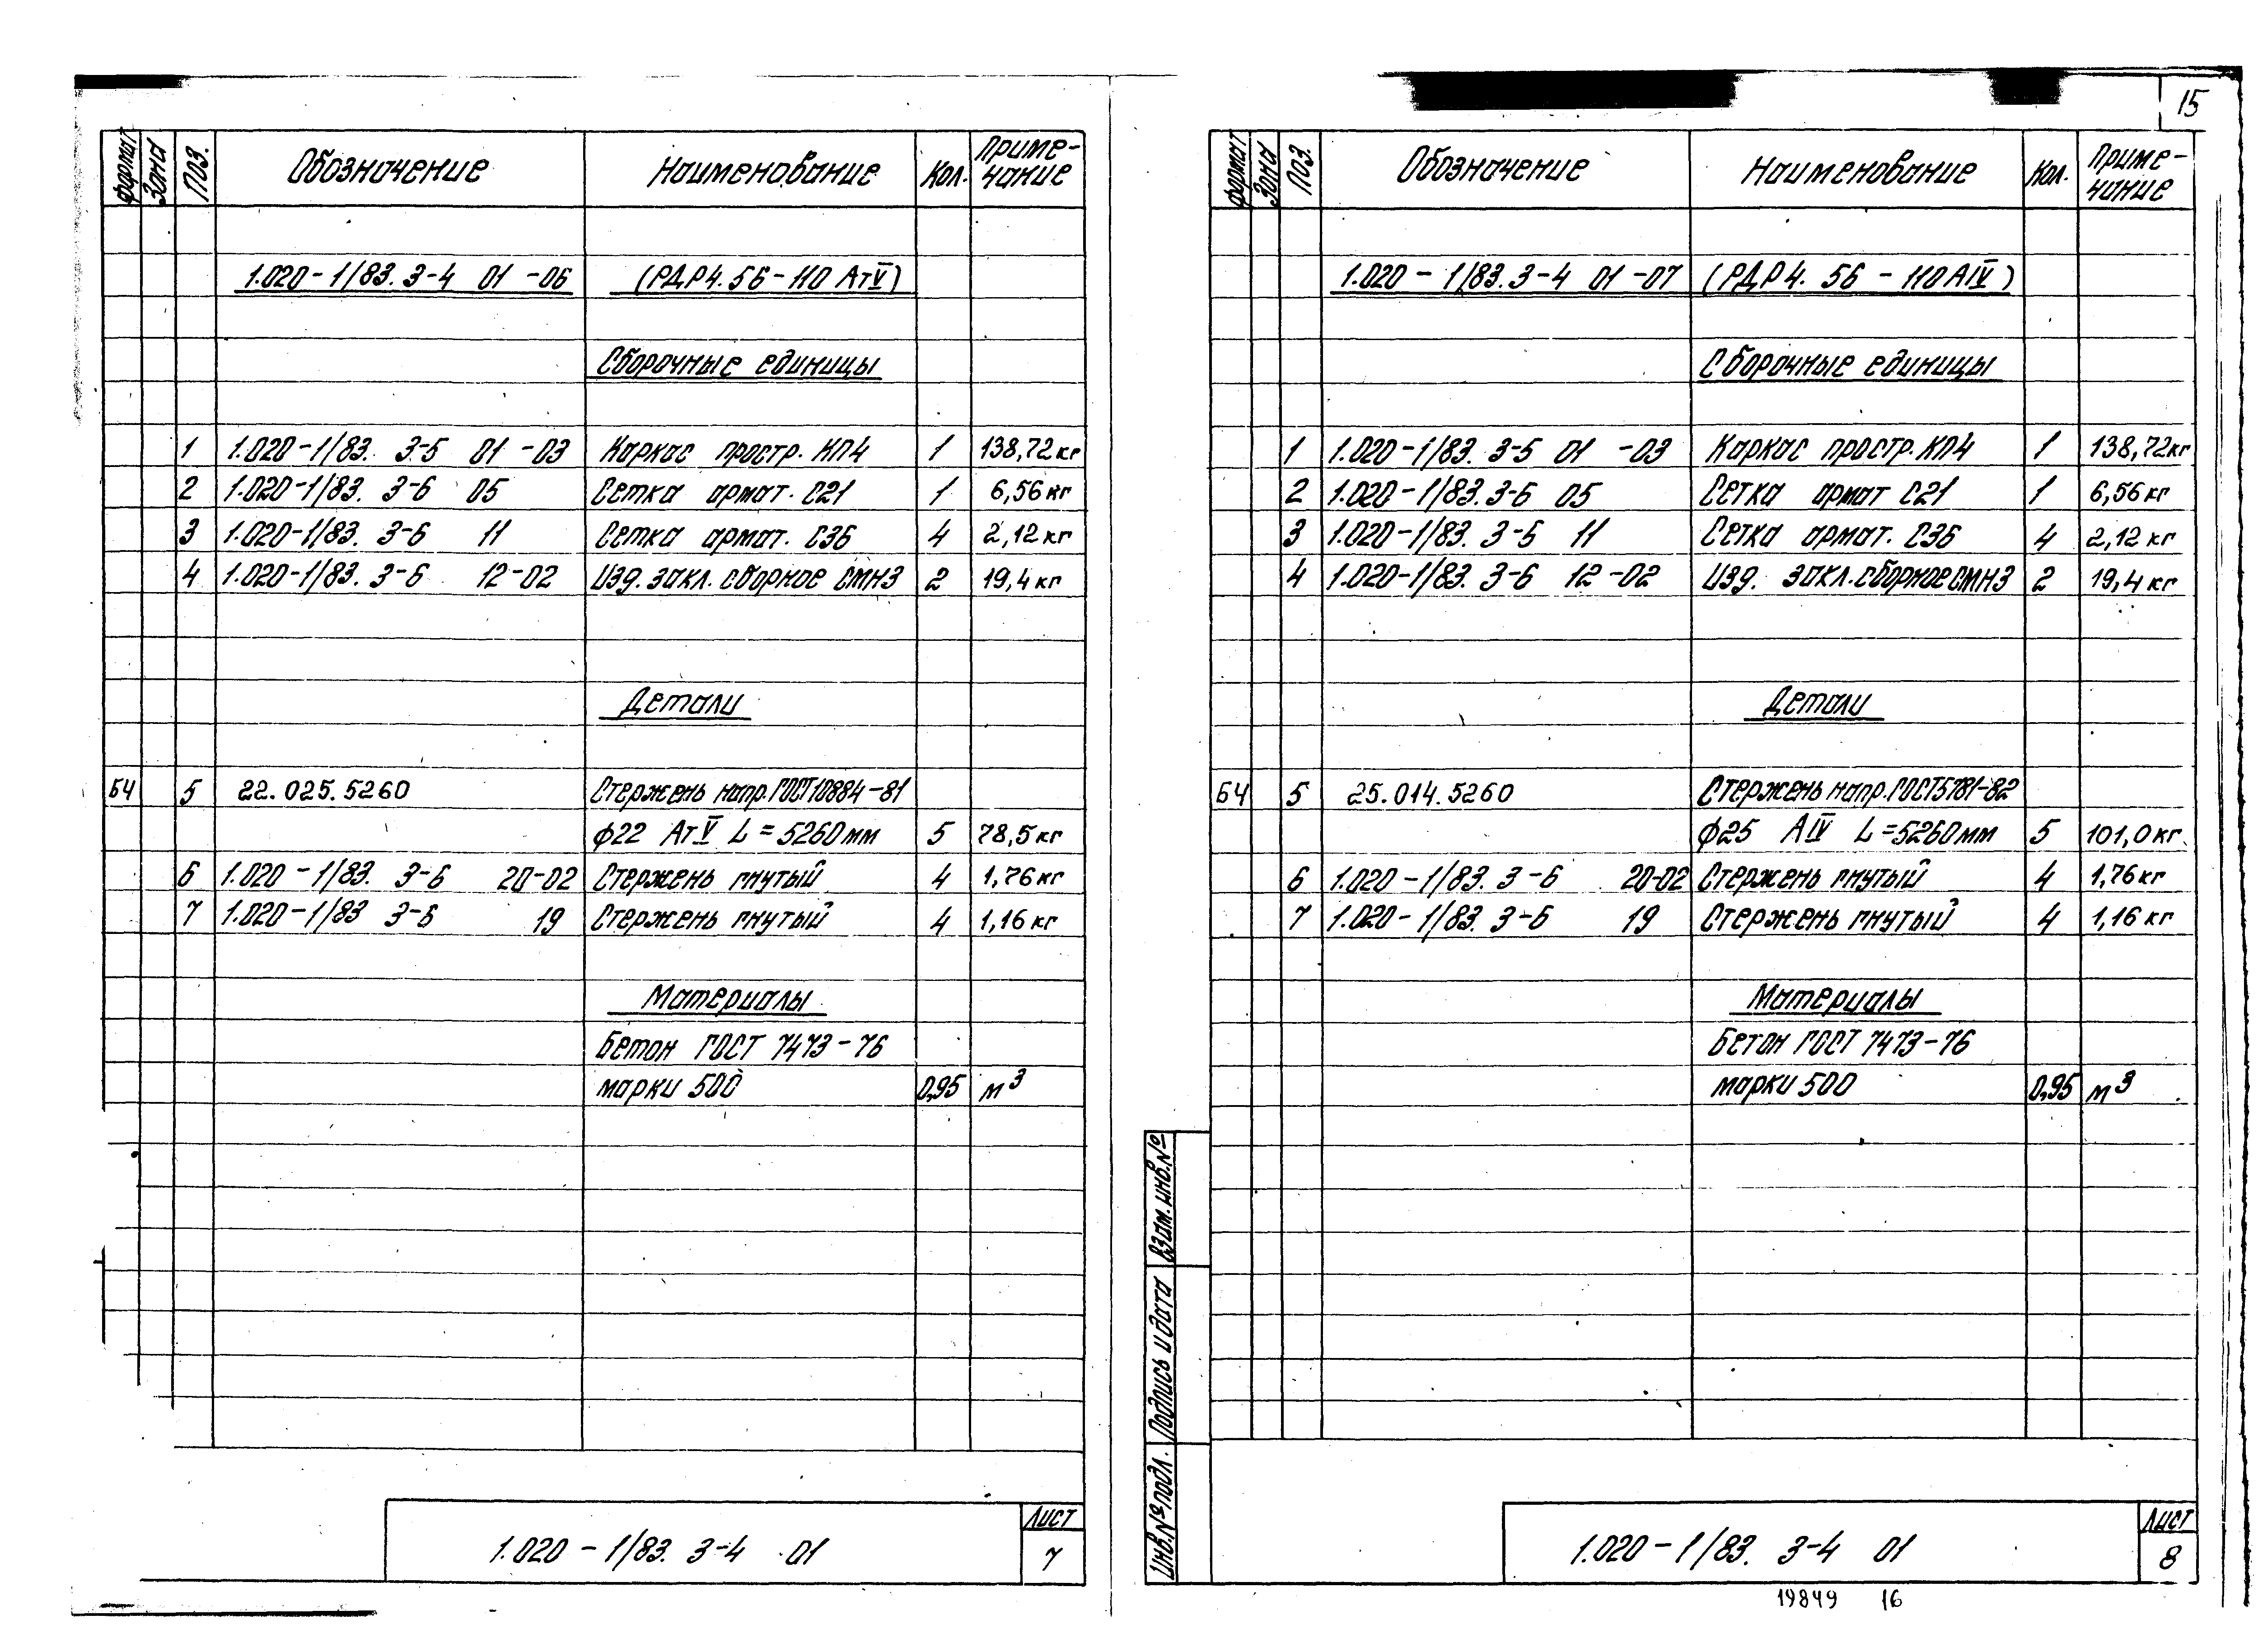 15
Формат Зона Поз. Обозначение Наименование Кол. Приме-
чание
1.020-1/83. 3-4 01 -06 (РДР4.56-110 АтV)
Сборочные единицы
1 1.020-1/83. 3-5 01 -03 Каркас простр. КП4 1 138,72 кг
2 1.020-1/83. 3-6 05 Сетка армат. С21 1 6,56 кг
3 1.020-1/83. 3-6 11 Сетка армат. С36 4 2,12 кг
4 1.020-1/83. 3-6 12-02 Изд. закл. сборное СМН3 2 19,4 кг
Детали
БЧ 5 22.025.5260 Стержень напр. ГОСТ 10884-81
ф22 АтV L=5260мм 5 78,5 кг
6 1.020-1/83. 3-6 20-02 Стержень гнутый 4 1,76 кг
7 1.020-1/83 3-6 19 Стержень гнутый 4 1,16 кг
Материалы
Бетон ГОСТ 7473-76
марки 500 0,95 м³
1.020-1/83. 3-4 01
Лист
7
Формат Зона Поз. Обозначение Наименование Кол. Приме-
чание
1.020-1/83. 3-4 01 -07 (РДР4.56-110 АIV)
Сборочные единицы
1 1.020-1/83. 3-5 01 -03 Каркас простр. КП4 1 138,72 кг
2 1.020-1/83. 3-6 05 Сетка армат С21 1 6,56 кг
3 1.020-1/83. 3-6 11 Сетка армат. С36 4 2,12 кг
4 1.020-1/83. 3-6 12-02 Изд. закл. сборное СМН3 2 19,4 кг
Детали
БЧ 5 25.014.5260 Стержень напр. ГОСТ 5781-82
ф25 АIV L=5260мм 5 101,0 кг
6 1.020-1/83. 3-6 20-02 Стержень гнутый 4 1,76 кг
7 1.020-1/83. 3-6 19 Стержень гнутый 4 1,16 кг
Материалы
Бетон ГОСТ 7473-76
марки 500 0,95 м³
Взам. инв. №
Подпись и дата
Инв. № подл.
1.020-1/83. 3-4 01
Лист
8
19849 16